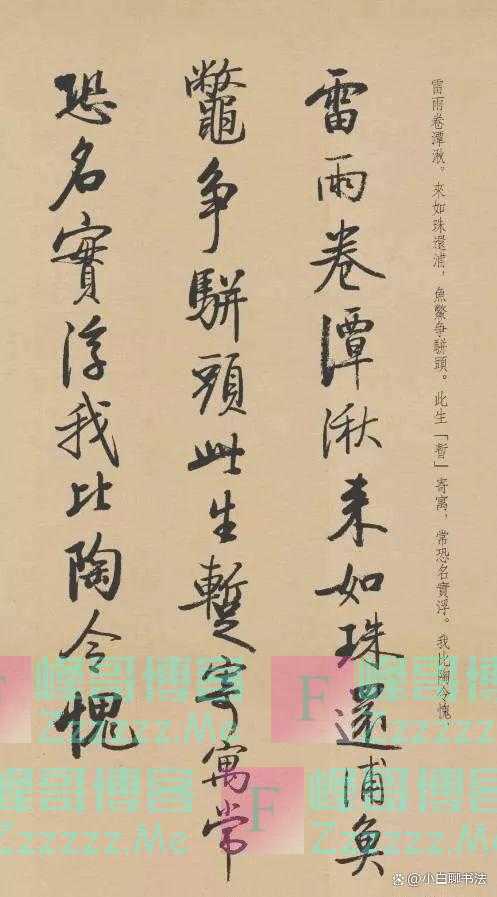 雷雨卷潭湫。來如珠還浦，魚鱉争駢頭。此生「暫」寄寓，常恐名實浮。我比陶令愧，
雷雨卷潭湫来如珠還浦魚
鼈争駢頭此生暫寄寓常
恐名實浮我比陶令愧
F 峰哥博客
Zzzzzz.Me
F 峰哥博客
Zzzzzz.Me
@小白聊书法